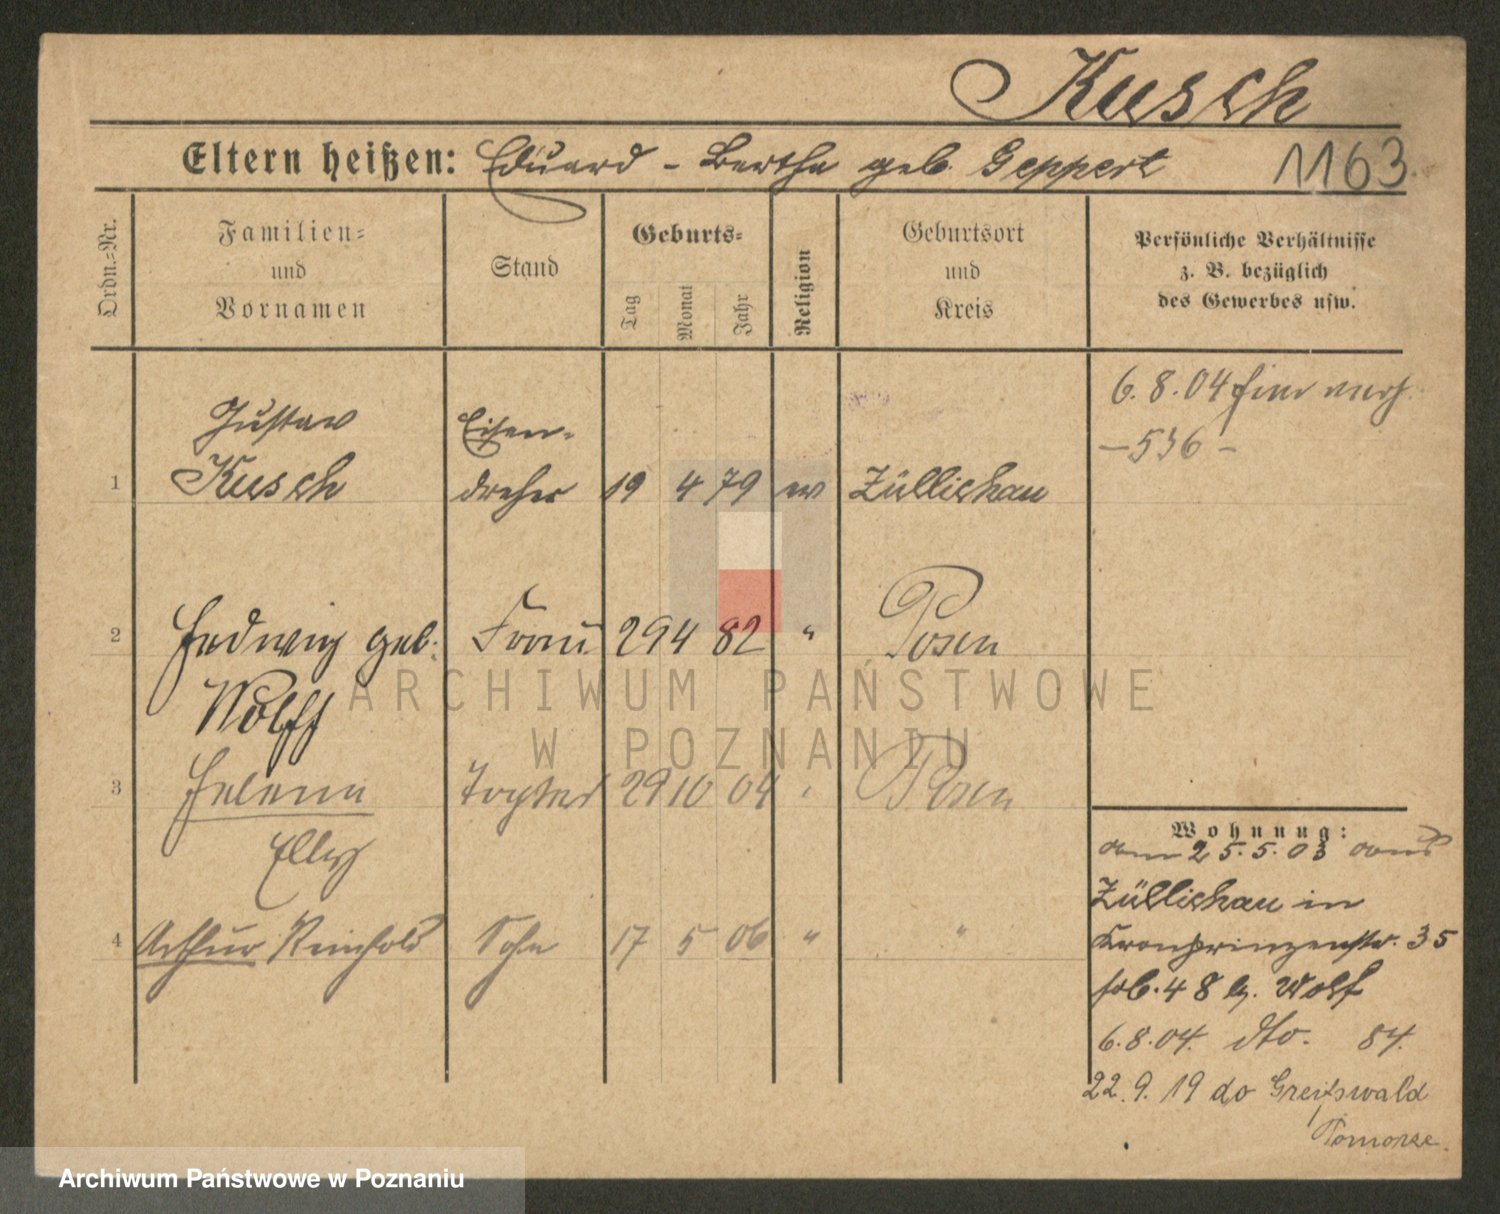 Kusch
Eltern heißen: Eduard - Bertha geb. Geppert
1163
Ordn.-Nr.
Familien-
und
Vornamen
Stand
Geburts-
Tag
Monat
Jahr
Religion
Geburtsort
und
Kreis
Persönliche Verhältnisse
z. B. bezüglich
des Gewerbes usw.
6.8.04
-536-
Gustav Eisen-
1 Kusch dreher 19 4 79 ev Züllichau
2 Hedwig geb. Frau 29 4 82 " Posen
Wolff
3 Helene Tochter 29 10 04 " Posen
Elly
4 Arthur Reinhold Sohn 17 5 06 " "
Wohnung:
am 25.5.03 aus
Züllichau in
Kronprinzenstr. 35
48 b. Wolf
6.8.04. dto. 84.
22.9.19 do Greifswald
Pomorze
ARCHIWUM PAŃSTWOWE
W POZNANIU
Archiwum Państwowe w Poznaniu